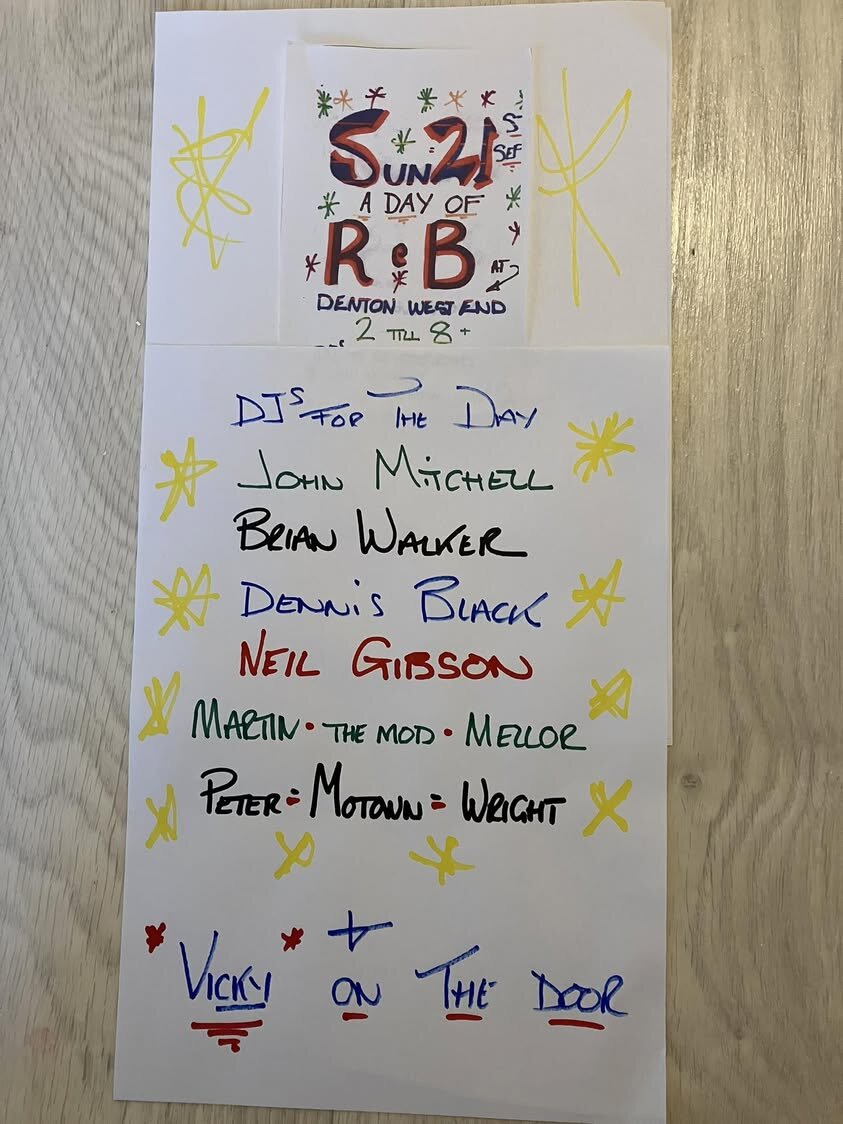 SUN 21S
SEP
A DAY OF
R e B
AT
DENTON WEST END
2 TILL 8+
DJS FOR THE DAY
JOHN MITCHELL
BRIAN WALKER
DENNIS BLACK
NEIL GIBSON
MARTIN • THE MOD • MELLOR
PETER = MOTOWN = WRIGHT
+
VICKY ON THE DOOR